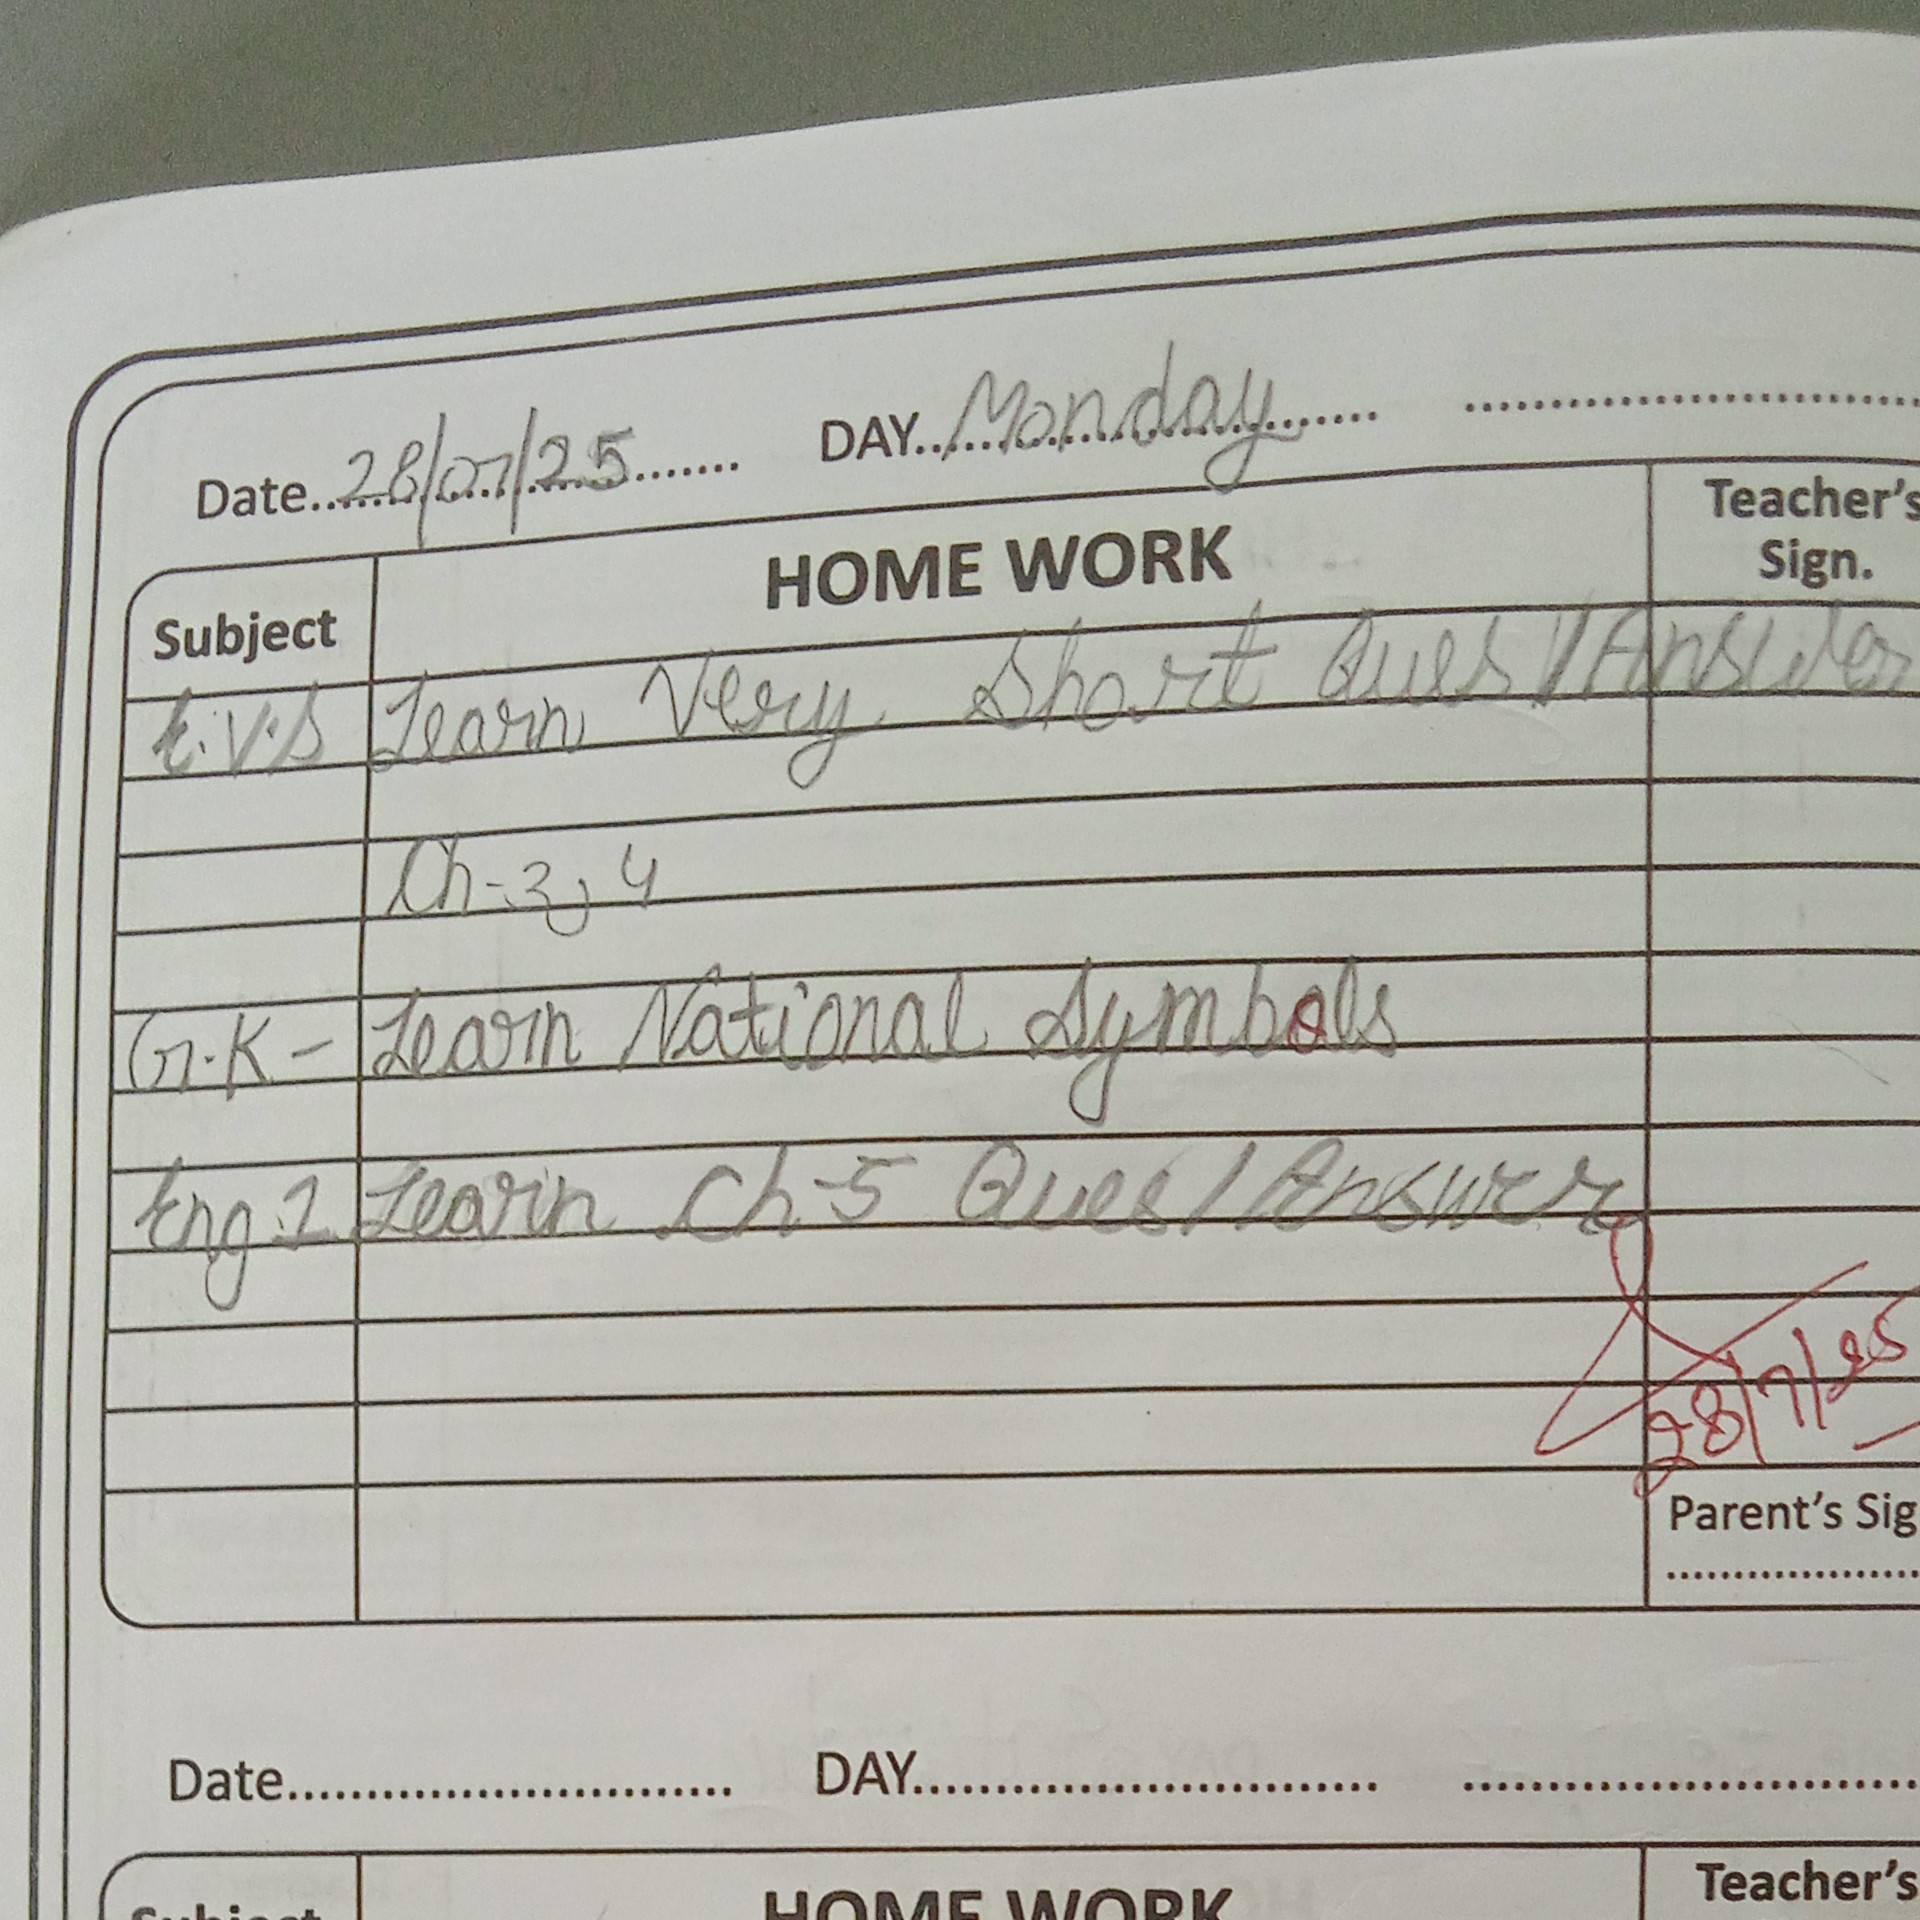 Date..28/07/25....... DAY..Monday......
Subject HOME WORK Teacher's Sign.
E.V.S Learn Very Short Ques/Answer
Ch-3, 4
G.K - Learn National Symbols
Eng 1 Learn Ch-5 Ques/Answer
28/7/25
Parent's Sig
Date............................ DAY.............................
Subject HOME WORK Teacher's